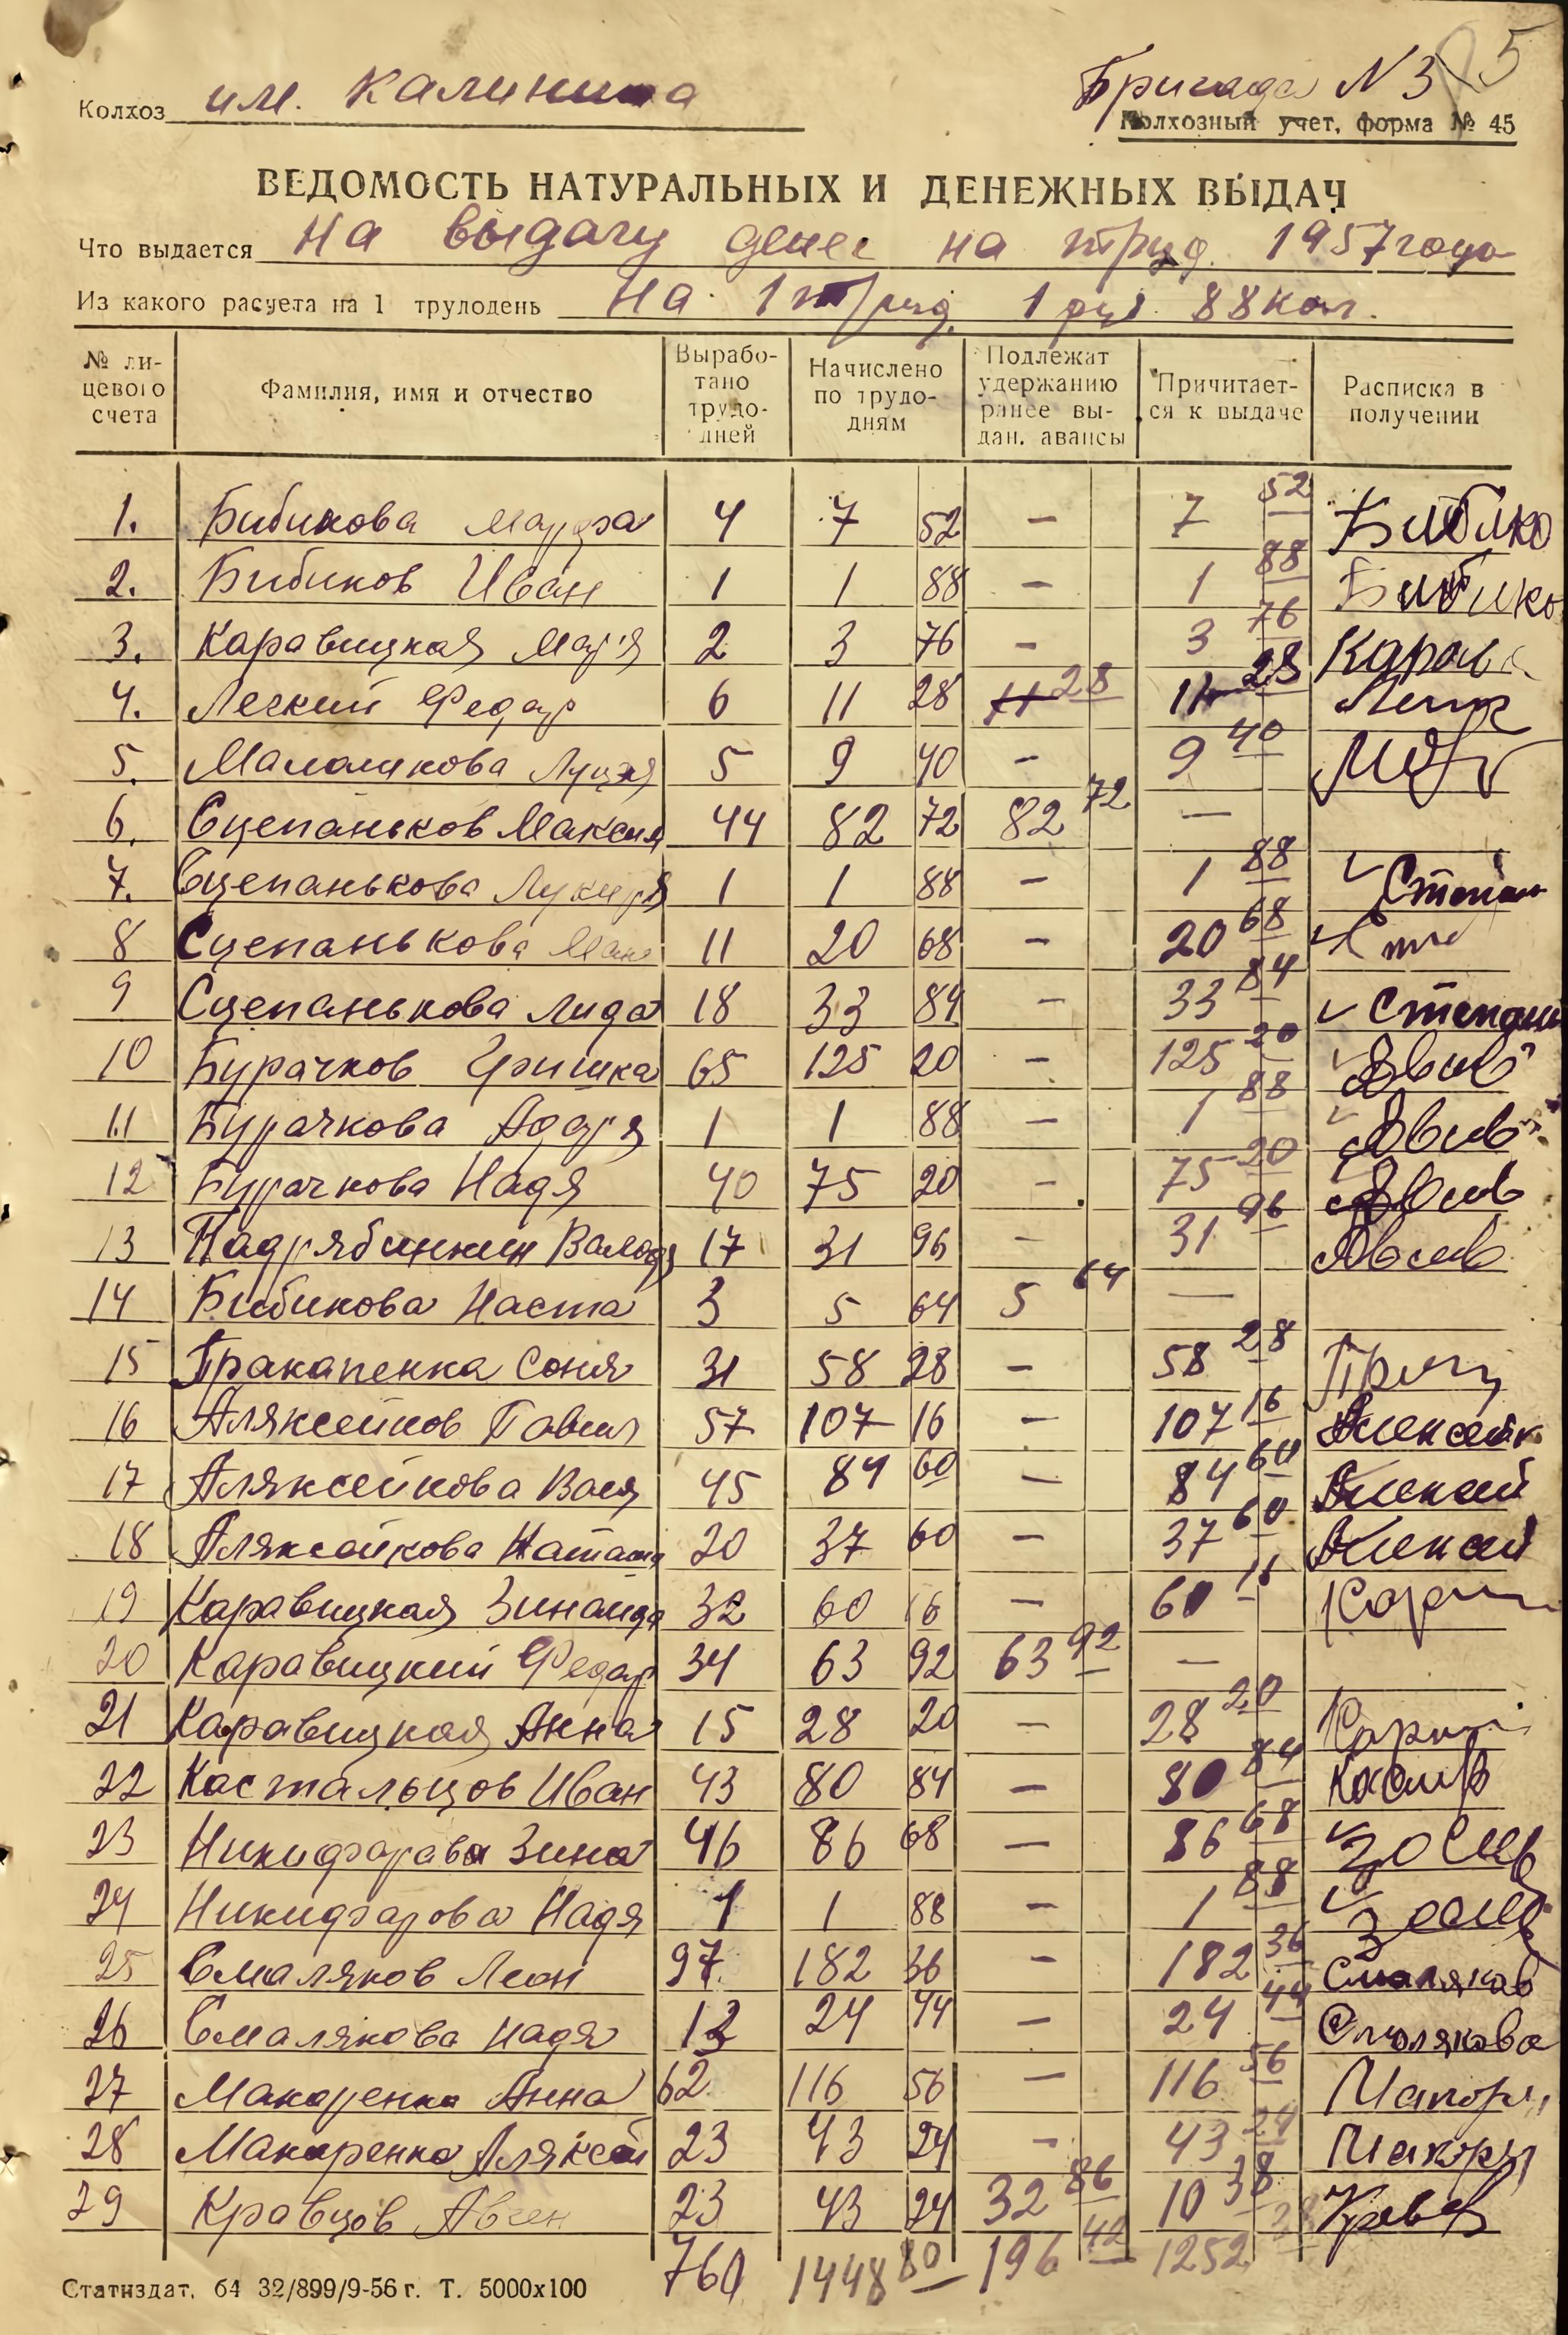 Бригада N 3 5
Колхоз им. Калинина
Колхозный учет, форма № 45
ВЕДОМОСТЬ НАТУРАЛЬНЫХ И ДЕНЕЖНЫХ ВЫДАЧ
Что выдается на выдачу денег на труд. 1957 года
Из какого расчета на 1 трудодень На 1 труд. 1 руб. 88 коп.
№ лицевого счета Фамилия, имя и отчество Выработано трудодней Начислено по трудодням Подлежат удержанию ранее выдан. авансы Причитается к выдаче Расписка в получении
1. Бибикова Марфа 4 7 52 – 7 52 Бибико
2. Бибиков Иван 1 1 88 – 1 88 Бибико
3. Каравицкая Марія 2 3 76 – 3 76 Карав
4. Легкий Федар 6 11 28 11 28 11 28
5. Малашкова 5 9 40 – 9 40
6. Сцепаньков Максим 44 82 72 82 72 –
7. Сцепанькова Лукир'я 1 1 88 – 1 88 Степан
8 Сцепанькова 11 20 68 – 20 68
9 Сцепанькова Лида 18 33 84 – 33 84 Степань
10 Бурачков Гришка 65 125 20 – 125 20
11 Бурачкова 1 1 88 – 1 88
12 Бурачкова Надя 40 75 20 – 75 20
13 Падрябинкин Валодя 17 31 96 – 31 96
14 Бибикова Наста 3 5 64 5 64 –
15 Пракапенка Соня 31 58 28 – 58 28
16 Аляксейков Павел 57 107 16 – 107 16 Алексейк
17 Аляксейкова Вася 45 84 60 – 84 60 Алексей
18 Аляксейкова Наташа 20 37 60 – 37 60 Алексей
19 Каравицкая Зинаида 32 60 16 – 60 16
20 Каравицкий Федар 34 63 92 63 92 –
21 Каравицкая Анна 15 28 20 – 28 20
22 Кастальцов Иван 43 80 84 – 80 84
23 Никифарава Зина 46 86 68 – 86 68
24 Никифарова Надя 1 1 88 – 1 88
25 Смаляков Леон 97 182 36 – 182 36 Смаляков
26 Смалякова Надя 13 24 44 – 24 44 Смолякова
27 Макаренка Анна 62 116 56 – 116 56 Макар
28 Макаренко Аляксей 23 43 24 – 43 24 Макар
29 Кравцов 23 43 24 32 86 10 38 Кравц
760 1448 80 196 42 1252 38
Статиздат. 64 32/899/9-56 г. Т. 5000х100